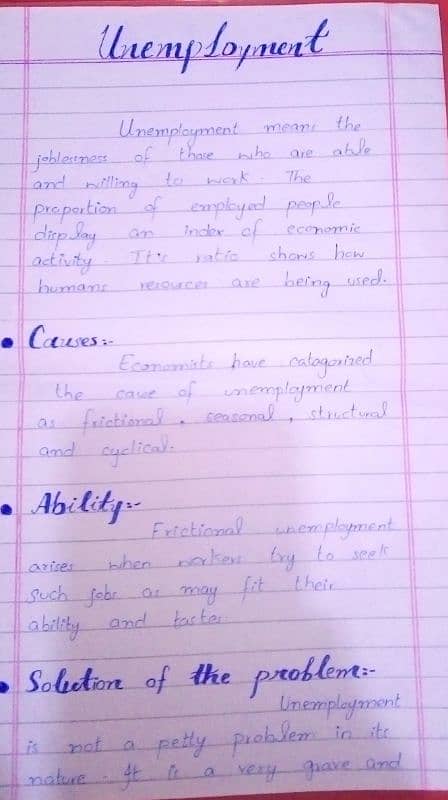 Unemployment
Unemployment means the
joblessness of those who are able
and willing to work. The
proportion of employed people
display an index of economic
activity. It's ratio shows how
humans resources are being used.
• Causes:-
Economists have catagorized
the cause of unemployment
as frictional, seasonal, structural
and cyclical.
• Ability:-
Frictional unemployment
arises when workers try to seek
such jobs as may fit their
ability and tastes
• Solution of the problem:-
Unemployment
is not a petty problem in its
nature. It is a very grave and